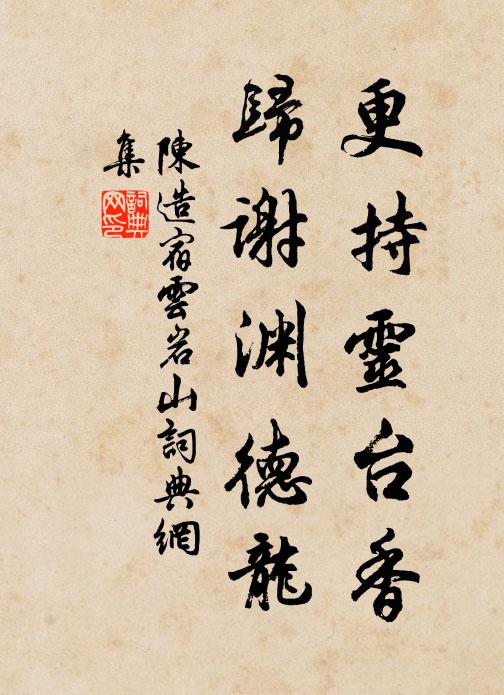 更持靈台香
歸谢渊德龍
陳造宿雲岩山詞典網
集
詞典網印